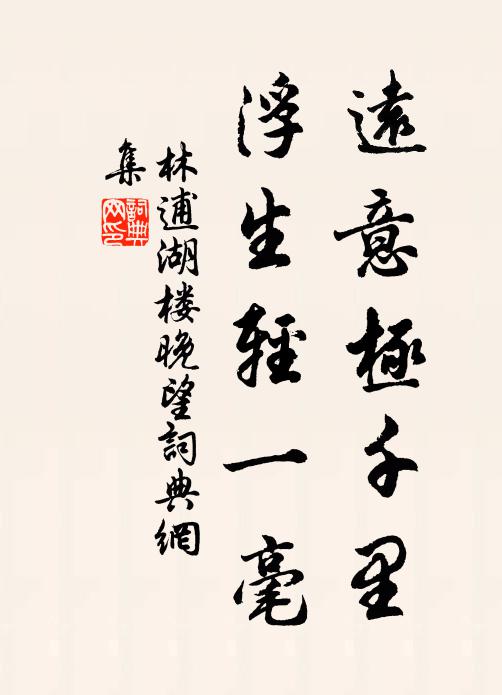 遠意極千里
浮生輕一毫
林逋湖楼晚望詞典網
集
詞典
网印